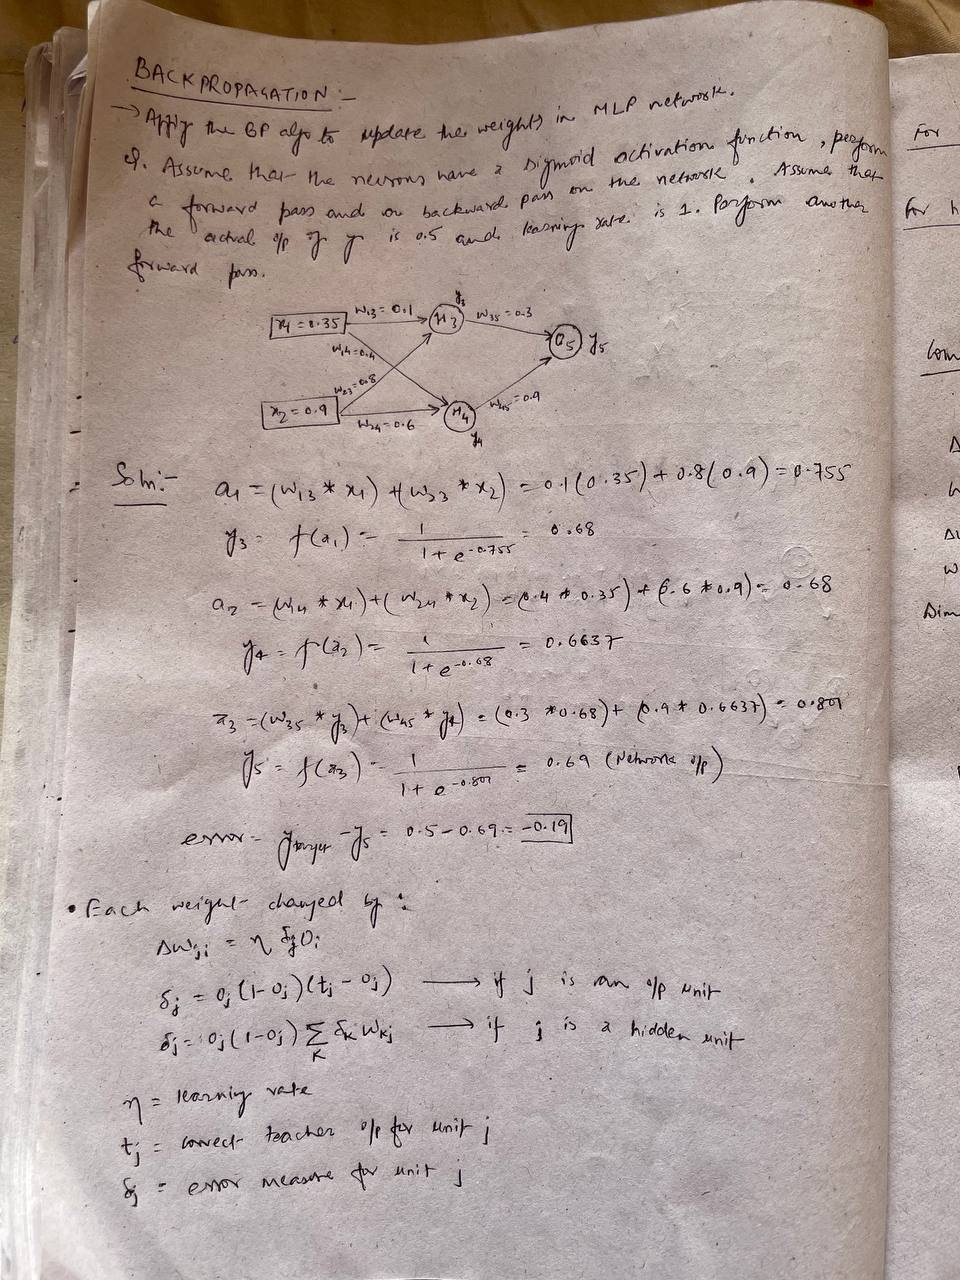 BACKPROPAGATION :-
→ Apply the BP algo to update the weights in MLP network.
Q. Assume that the neurons have a sigmoid activation function, perform
a forward pass and a backward pass on the network. Assume that
the actual o/p of y is 0.5 and learning rate is 1. Perform another
forward pass.
x1 = 0.35
w13 = 0.1
y3
H3
w35 = 0.3
O5 y5
w14 = 0.4
w23 = 0.8
x2 = 0.9
w24 = 0.6
H4
y4
w45 = 0.9
Soln:-
a1 = (w13 * x1) + (w23 * x2) = 0.1(0.35) + 0.8(0.9) = 0.755
y3 = f(a1) = 1 / (1 + e^-0.755) = 0.68
a2 = (w14 * x1) + (w24 * x2) = (0.4 * 0.35) + (0.6 * 0.9) = 0.68
y4 = f(a2) = 1 / (1 + e^-0.68) = 0.6637
a3 = (w35 * y3) + (w45 * y4) = (0.3 * 0.68) + (0.9 * 0.6637) = 0.801
y5 = f(a3) = 1 / (1 + e^-0.801) = 0.69 (Network o/p)
error = ytarget - y5 = 0.5 - 0.69 = -0.19
• Each weight changed by :
Δwji = η δj Oi
δj = oj (1-oj) (tj - oj) → if j is an o/p unit
δj = oj (1-oj) Σ K δK wKj → if j is a hidden unit
η = learning rate
tj = correct teacher o/p for unit j
δj = error measure for unit j
For
For h
Com
Δ
W
ΔW
W